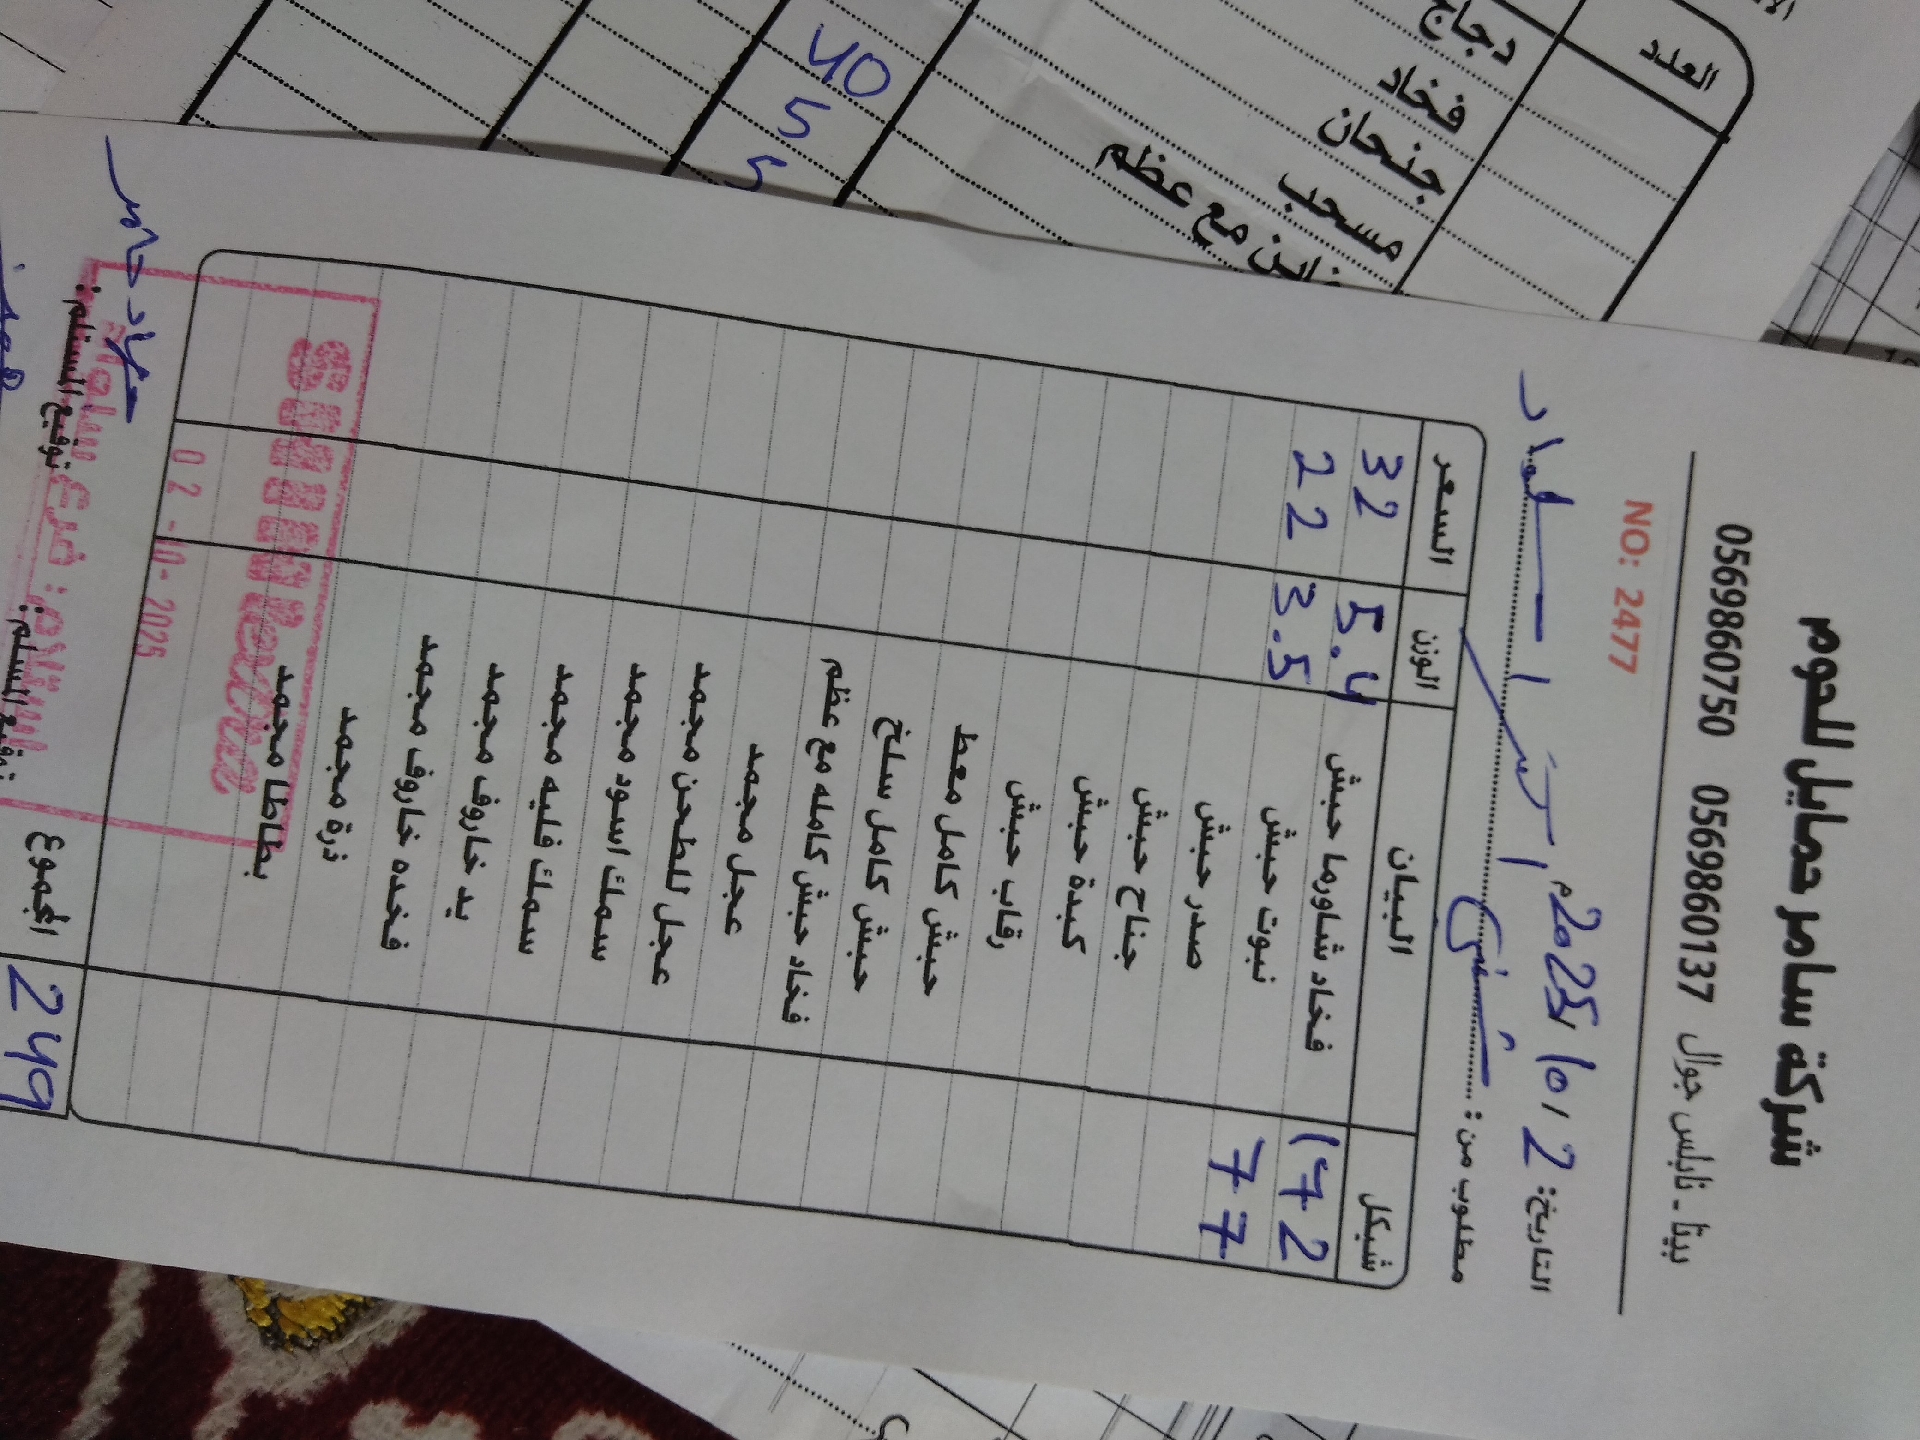 شركة سامر حمايل للحوم
بيتا - نابلس جوال 0569860137 0569860750
NO: 2477
التاريخ: 2 / 10 / 2025م
مطلوب من:
شيكل البيان الوزن السعر
172 فخاد شاورما حبش 5.4 32
77 نبوت حبش 3.5 22
صدر حبش
جناح حبش
كبدة حبش
رقاب حبش
حبش كامل معط
حبش كامل سلخ
فخاد حبش كامله مع عظم
عجل مجمد
عجل للطحن مجمد
سمك اسود مجمد
سمك فليه مجمد
يد خاروف مجمد
فخده خاروف مجمد
ذرة مجمد
بطاطا مجمد
249 المجموع
توقيع المسلم:
توقيع المستلم:
02-10-2025
العدد
دجاج
فخاد
جنحان
مسحب
مع عظم
40
5
5